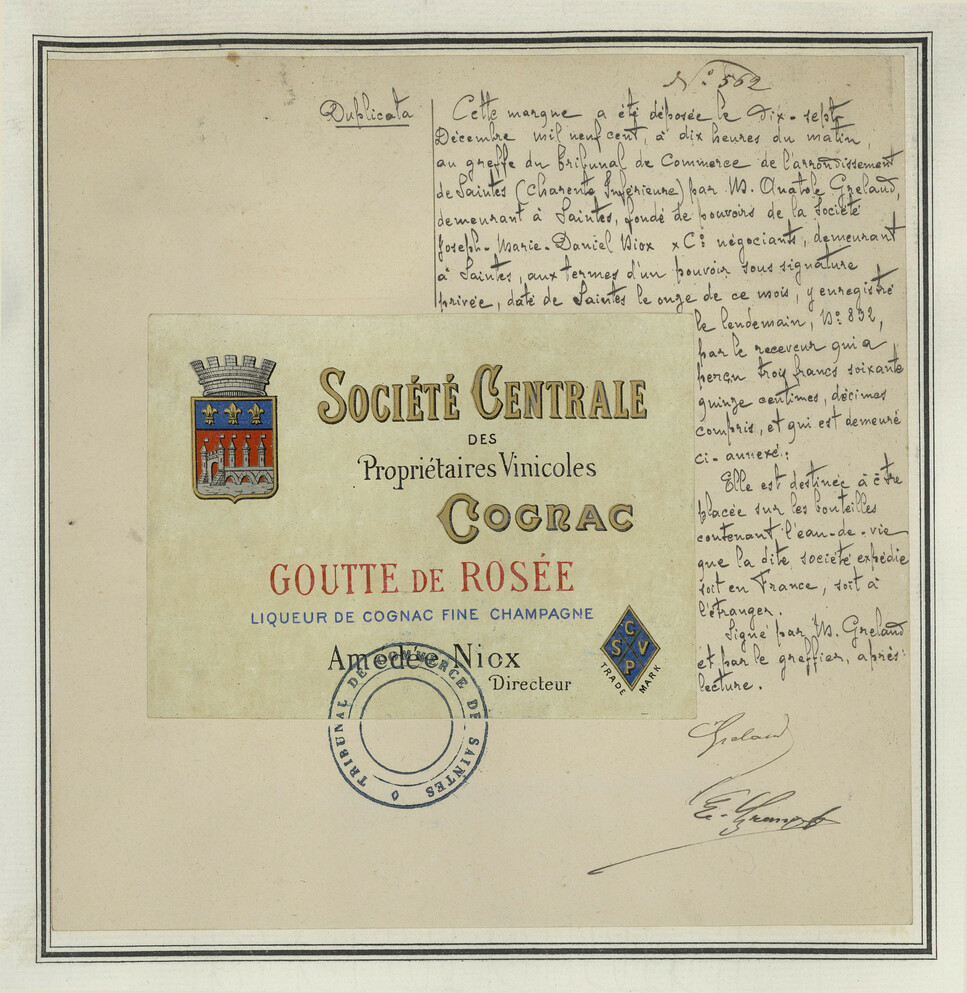 N° 562
Duplicata
Cette marque a été déposée le Dix-sept
Décembre mil neuf cent, à dix heures du matin,
au greffe du Tribunal de Commerce de l'arrondissement
de Saintes (Charente Inférieure) par M. Anatole Grelaud,
demeurant à Saintes, fondé de pouvoirs de la Société
Joseph-Marie-Daniel Niox & Cie négociants, demeurant
à Saintes, aux termes d'un pouvoir sous signature
privée, daté de Saintes le onze de ce mois, y enregistré
le lendemain, N° 832,
par le receveur qui a
perçu trois francs soixante
quinze centimes, décimes
compris, et qui est demeuré
ci-annexé.
Elle est destinée à être
placée sur les bouteilles
contenant l'eau-de-vie
que la dite société expédie
soit en France, soit à
l'étranger.
Signé par M. Grelaud
et par le greffier, après
lecture.
Grelaud
SOCIÉTÉ CENTRALE
DES
Propriétaires Vinicoles
COGNAC
GOUTTE DE ROSÉE
LIQUEUR DE COGNAC FINE CHAMPAGNE
Amédée Niox
Directeur
C
S V
P
TRADE MARK
TRIBUNAL DE COMMERCE DE SAINTES